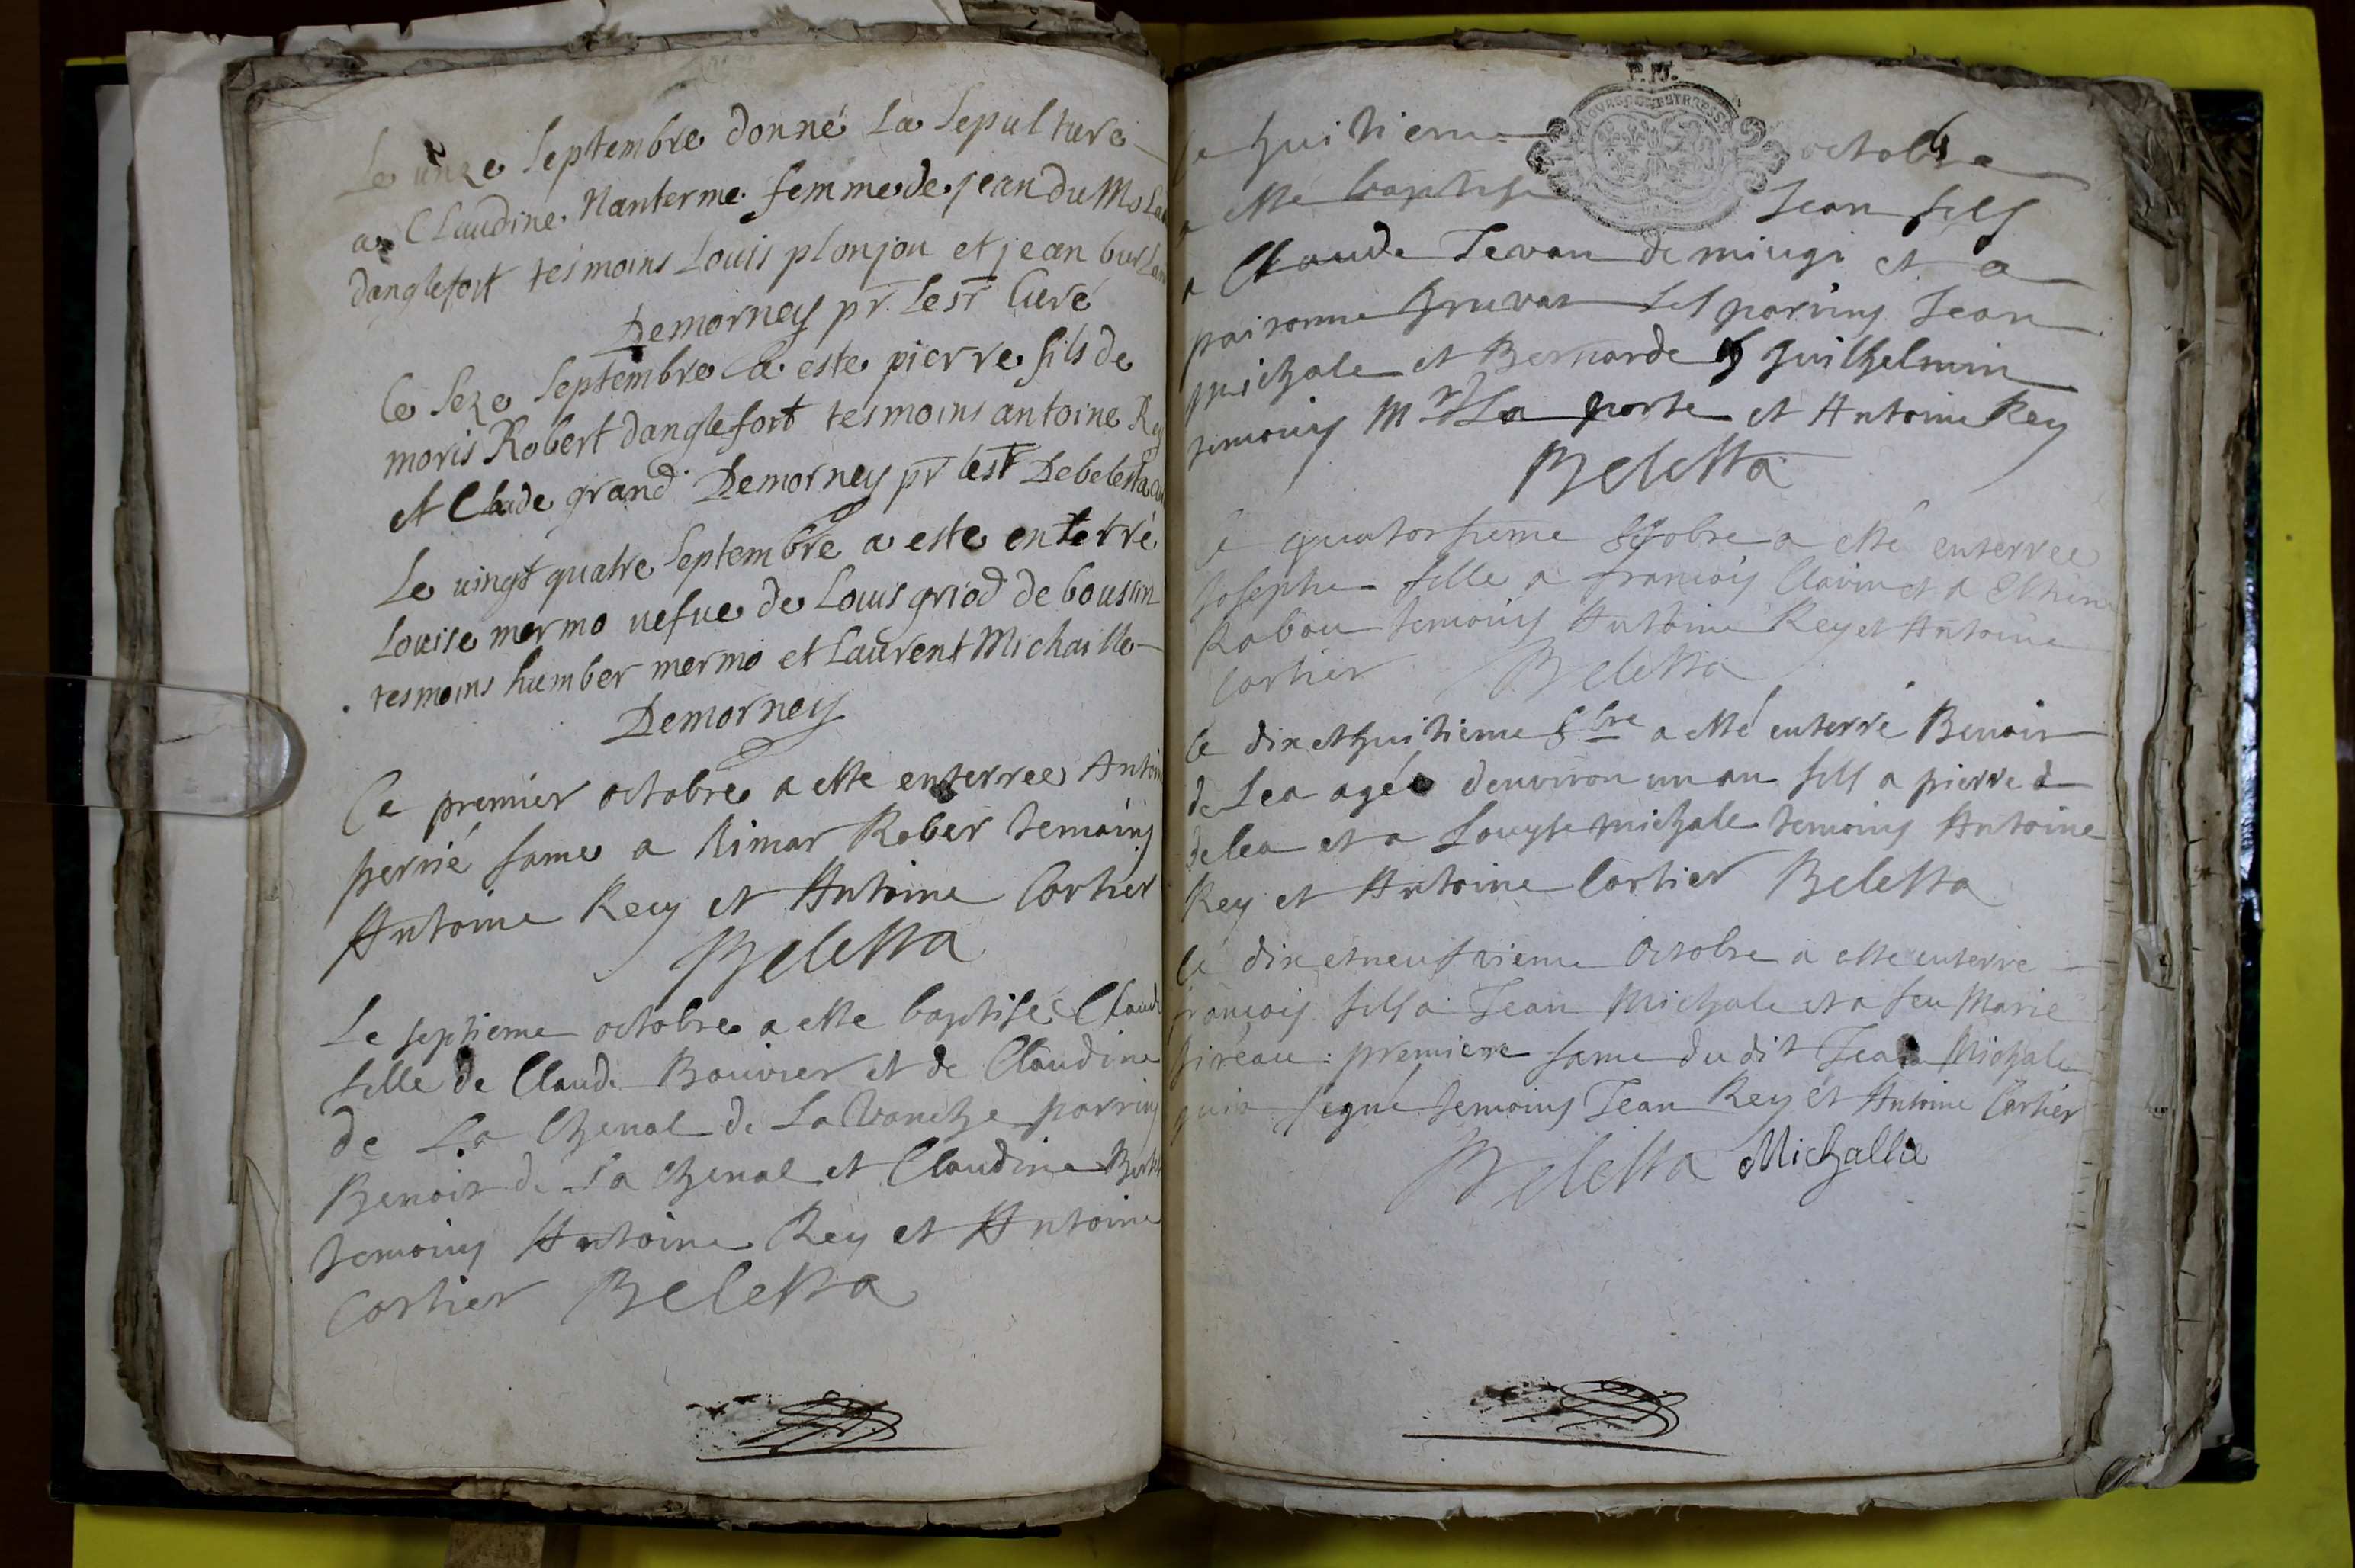 Le unze Septembre donné La Sepulture
a Claudine Nanterme femme de jean du Mo
danglefort tesmoins Louis plonjon et jean bur
Demorney pr. lesr Curé
Ce Seze Septembre a este pierre fils de
moris Robert danglefort tesmoins antoine Rey
et Claude grand Demorney pr lesr Debelesta
Le uingt quatre Septembre a este enterré
Louise mermo uefue de Louis griod de boussin
tesmoins humber mermo et Laurent Michaille
Demorney
Ce premier octobre a este enterree Antoin
pernié fame a Rober temoins
Antoine Rey et Antoine Cortier
Belesta
Le septieme octobre a este baptisé Claud
fille de Claude Bouvier et de Claudine
de La Chenal de La parrins
Benoit de La Chenal et Claudine
temoins Antoine Rey et Antoine
Cortier Belesta
P. IV.
Le huitieme octobre
a este baptise Jean fils
a Claude Tevan de miugi et a
Gruvat les parrins Jean
michale et Bernarde Guilhelmin
temoins Mr La porte et Antoine Rey
Belesta
Le quatorsieme octobre a esté enterree
Josephe fille a francois et a
Rabou temoins Antoine Rey et Antoine
Cortier Belesta
Ce dix et huitieme 8bre a esté enterré Benoit
de Lea agée denviron un an fils a pierre d
delea et a Louyse michale temoins Antoine
Rey et Antoine Cortier Belesta
Ce dix et neufvieme Octobre a este enterre
francois fils a Jean Michale et a feu Marie
premiere fame du dit Jean Michale
signé temoins Jean Rey et Antoine Cartier
Belesta Michallie